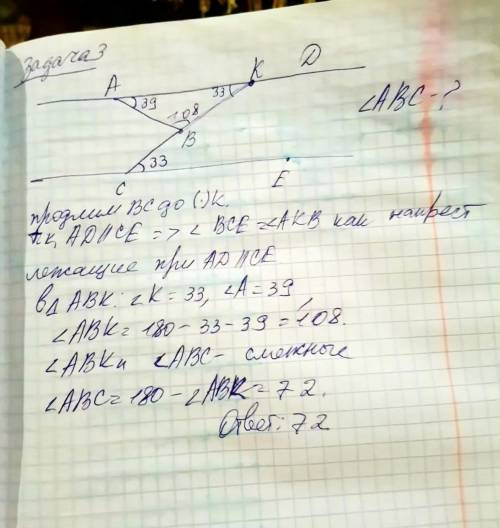 Задача 3
A K D
39 33
108
B
∠ABC-?
33
C E
продлим BC до (·)K.
т.к. AD||CE => ∠BCE = ∠AKB как накрест
лежащие при AD||CE
в △ ABK: ∠K = 33, ∠A = 39
∠ABK = 180 - 33 - 39 = 108.
∠ABK и ∠ABC - смежные
∠ABC = 180 - ∠ABK = 72.
Ответ: 72